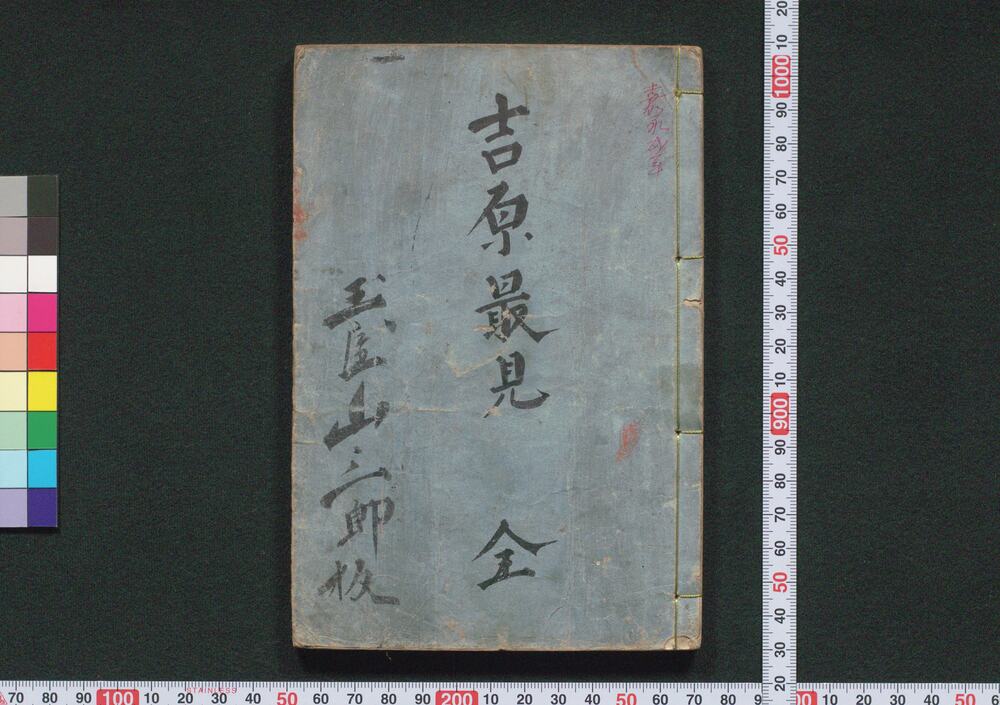 吉原最見 全
玉屋山三郎板
一
20
10
1000
90
80
70
60
50
40
30
20
10
900
90
80
70
60
50
40
30
20
70 80 90 100 10 20 30 40 50 60 70 80 90 200 10 20 30 40 50 60 70 80 90 00 10 20 30 40 50 6
STAINLESS